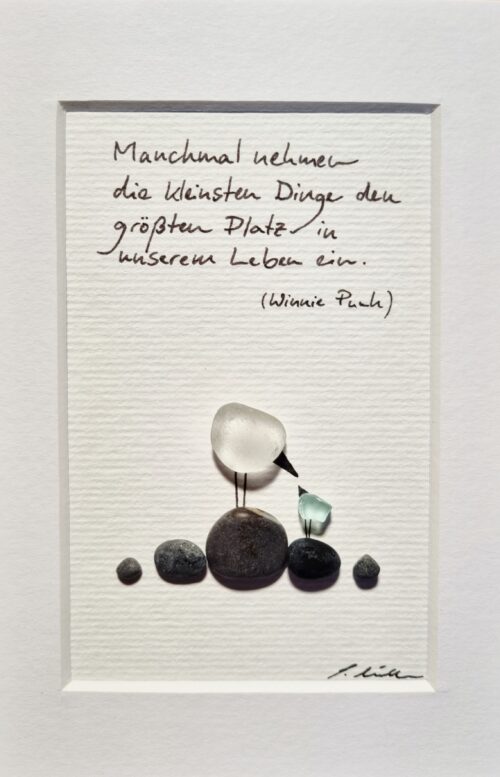 Manchmal nehmen
die kleinsten Dinge den
größten Platz in
unserem Leben ein.
(Winnie Puuh)